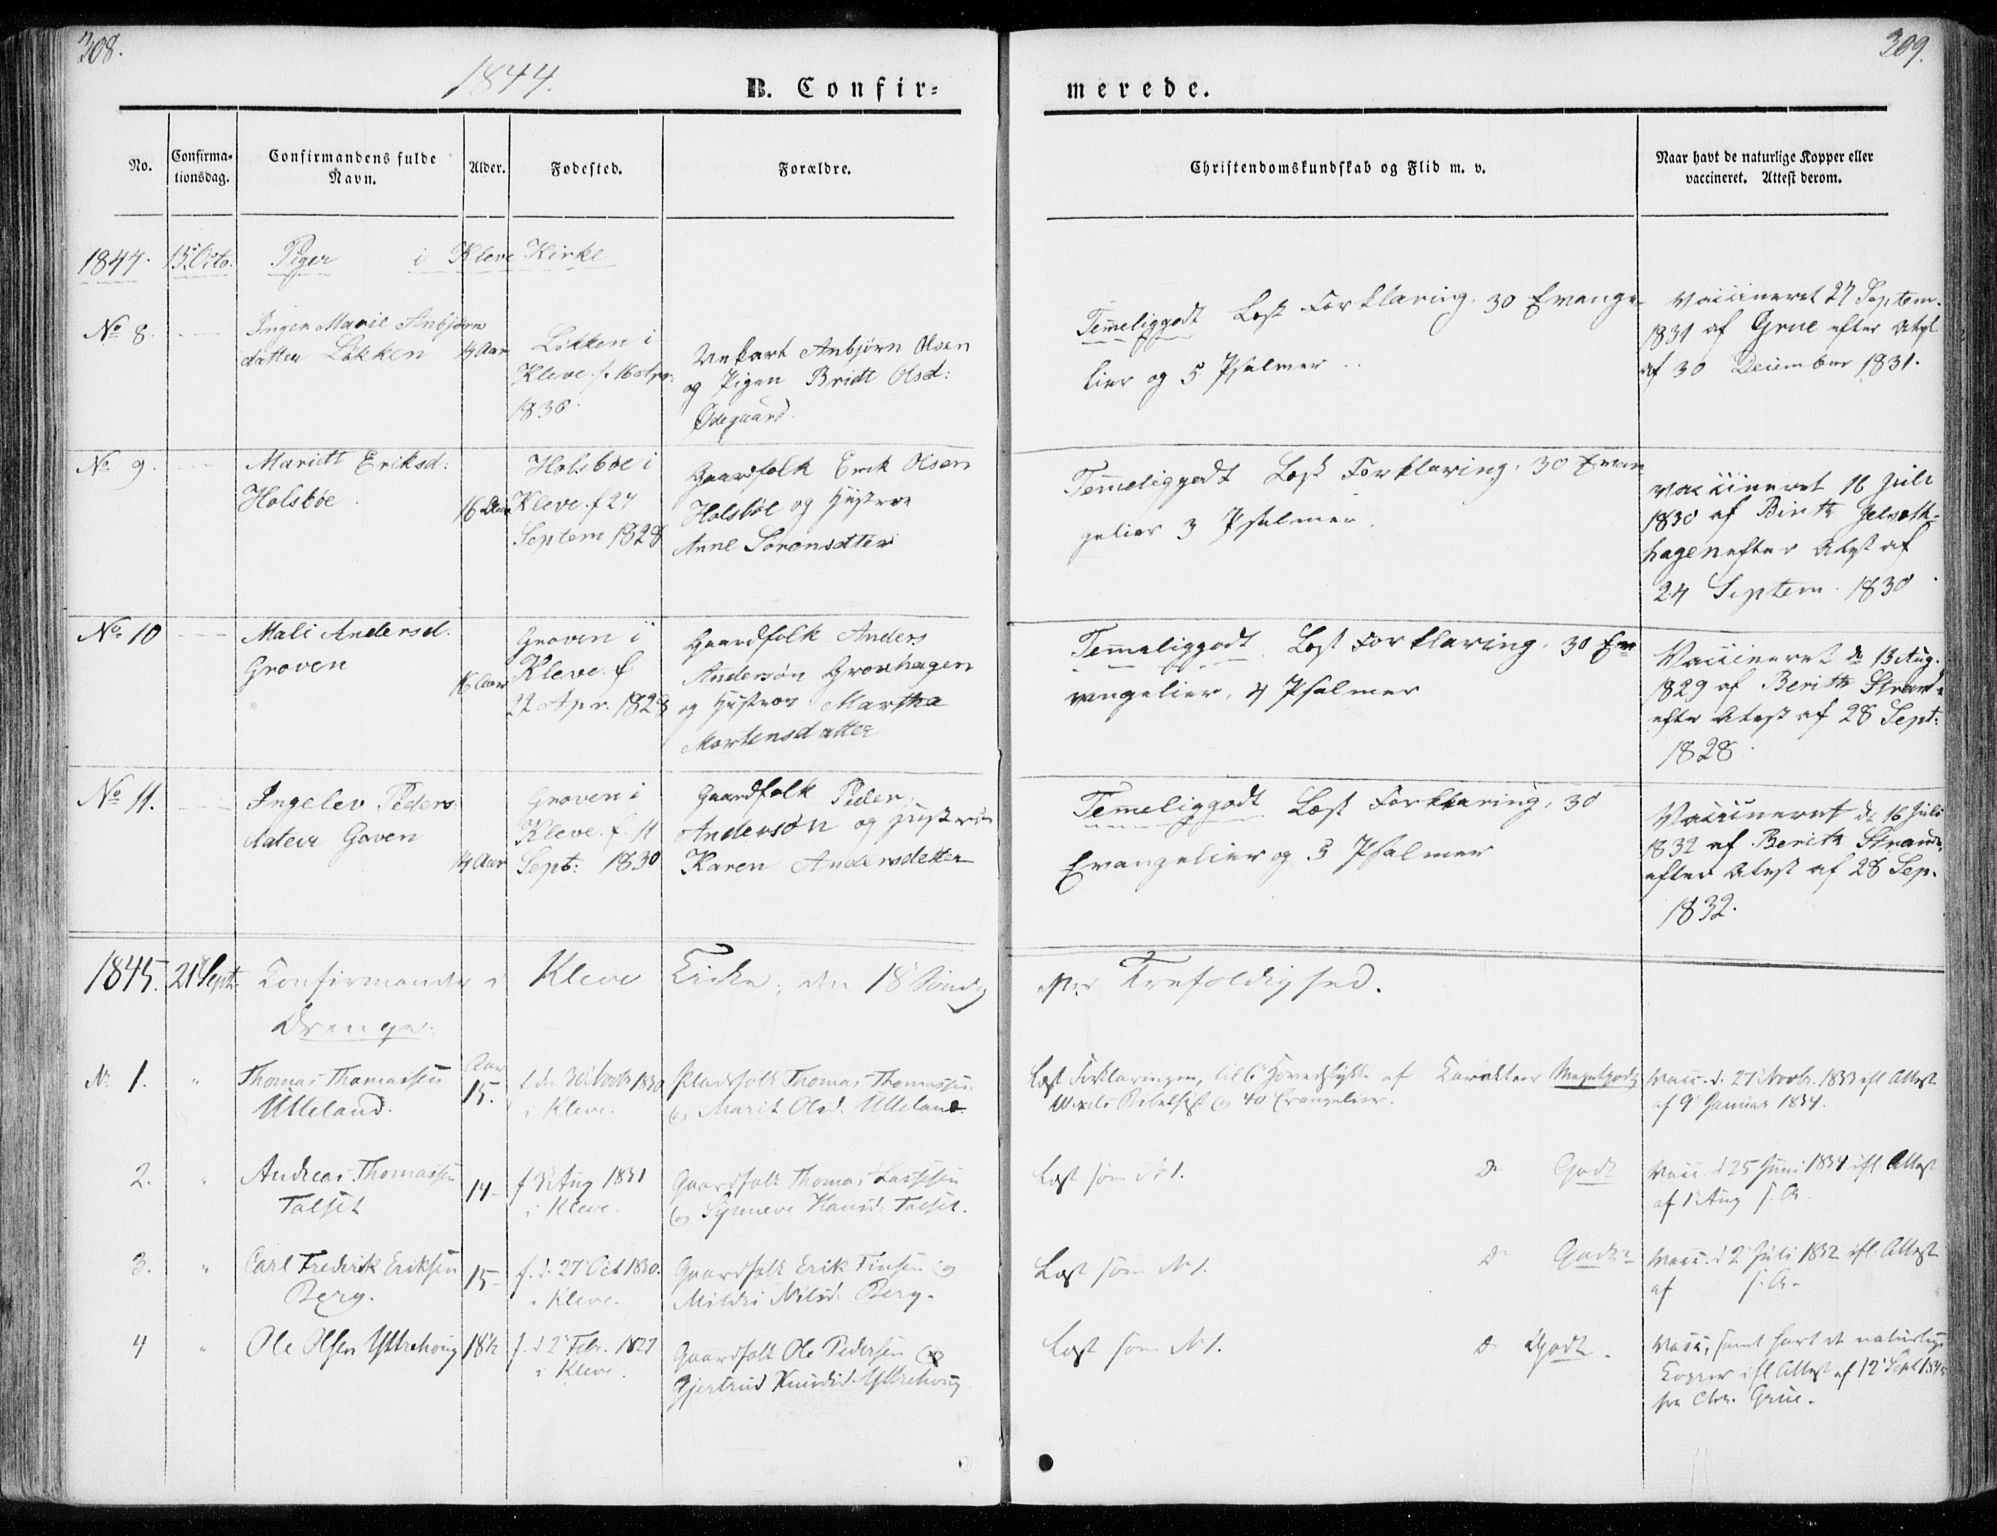 308.
309.
1844.
B. Confir-
merede.
No.
Confirma-
tionsdag.
Confirmandens fulde
Navn.
Alder.
Fødested.
Forældre.
Christendomskundskab og Flid m. v.
Naar havt de naturlige Kopper eller
vaccineret. Attest derom.
1844. 13 Octo. Piger i Kleve Kirke
No 8.
Inger Marie Anbjørns
datter Løkken
14 Aar
Løkken i
Kleve. f. 16 Apr:
1830.
Unkart Anbjørn Olsen
og Pigen Bridt Olsd:
Ødegaard.
Temeliggodt Læst Forklaring. 30 Evange
lier og 5 Psalmer
Vaccineret 27 Septem.
1831 af Grue efter Atest
af 30 December 1831.
No 9.
Maridt Eriksd:
Holsbøe.
16 Aar
Holsbøe i
Kleve. f 24
Septem 1828
Gaardfolk Erik Olsen
Holsbøe og Hustroe
Anne Sørensdtter
Temeliggodt Læst Forklaring. 30 Evan
gelier 3 Psalmer.
Vaccineret 16 Juli
1830 af Birth Jelseth-
hagen efter Atest af
24 Septem. 1830
No 10
Mali Andersd.
Groven
16 Aar
Groven i
Kleve. f
22 Apr. 1828
Gaardfolk Anders
Andersøn Grovhagen
og Hustroe Martha
Mortensdatter
Temeliggodt. Læst Forklaring. 30 Ev
vangelier. 4 Psalmer
Vaccineret d 13 Aug.
1829 af Berith Strand
efter Atest af 28 Sept:
1828.
No 11.
Ingelev Peders
datter Goven
14 Aar
Groven i
Kleve. f. 11
Sept: 1830
Gaardfolk Peder
Andersøn og Hustroe
Karen Andersdetter
Temeliggodt Læst Forklaring. 30
Evangelier og 3 Psalmer
Vaccineret d 16 Juli
1832 af Berith Strand,
efter Atest af 28 Sep.
1832.
1845. 21 Sept. Confirmander i Kleve Kirke, den 18 Søndag efter Trefoldighed.
Drenge.
No 1.
Thomas Thomassen
Ulleland.
Aar
15.
f. d. 30 Novbr 1830
i Kleve.
Pladsfolk Thomas Thomassen
og Marit Olsd. Ulleland
Læst Forklaringen, til 6 Hovedstykke af
Wexels Bibelhist og 40 Evangelier.
Karakteer Megetgodt
Vacc. d. 27 Novbr. 1833 ifl. Attest
af 9 Januar 1834.
2.
Andreas Thomassen
Talset
14-
f 3 Aug 1831
i Kleve.
Gaardfolk Thomas Larssen
og Synneve Hansd. Talset.
Læst som No 1.
Do Godt
Vacc. d 25 Juni 1834 ifl. Attest
af 1 Aug s. A.
3.
Carl Frederik Eriksen
Berg.
15-
f. d. 27 Oct 1830.
i Kleve.
Gaardfolk Erik Finsen og
Mildri Nilsd. Berg.
Læst som No 1.
Do Godt
Vacc. d 2 Juli 1832 ifl. Attest
af s. A.
4
Ole Olsen Yttrehoug
18½
f. d 2 Febr. 1827
i Kleve.
Gaardfolk Ole Pedersen og
Gjertrud Knudsd. Yttrehoug.
Læst som No 1.
Do Godt.
Vacc, samt havt de naturlige
Kopper ifl. Attest af 12 Sept 1845
fra Chr. Grue.